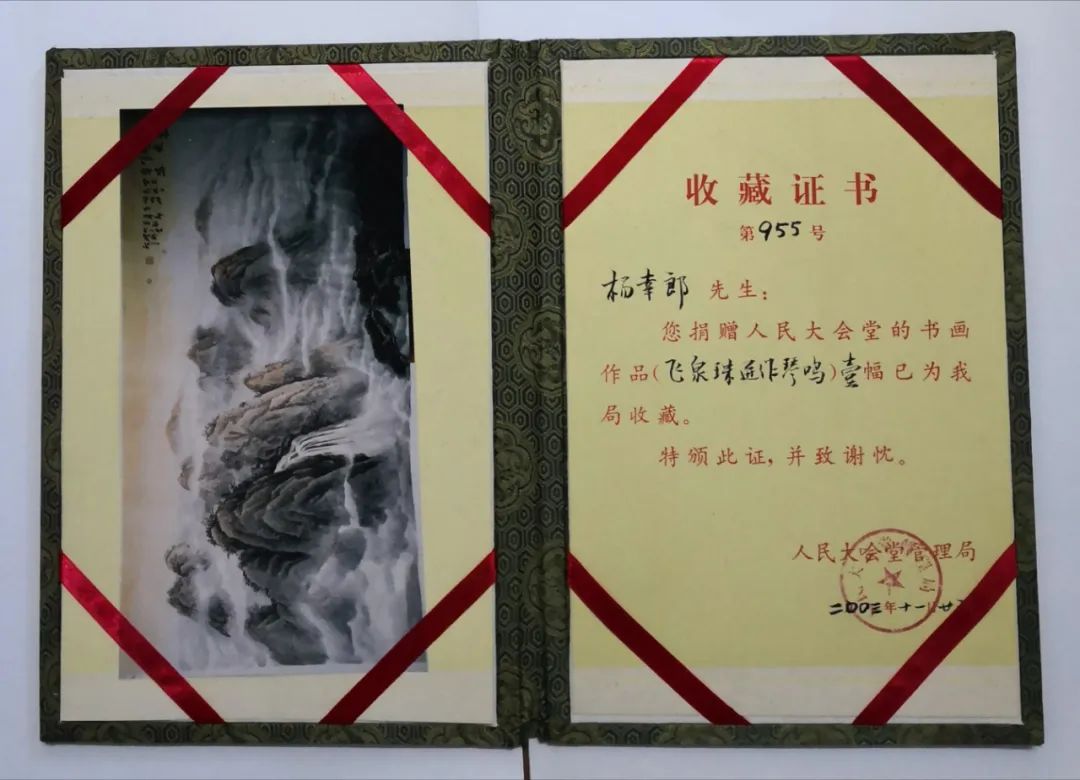 收藏证书
第955号
杨幸郎 先生：
您捐赠人民大会堂的书画
作品(飞泉珠迸作琴鸣)壹幅已为我
局收藏。
特颁此证，并致谢忱。
人民大会堂管理局
二00三年十一月廿